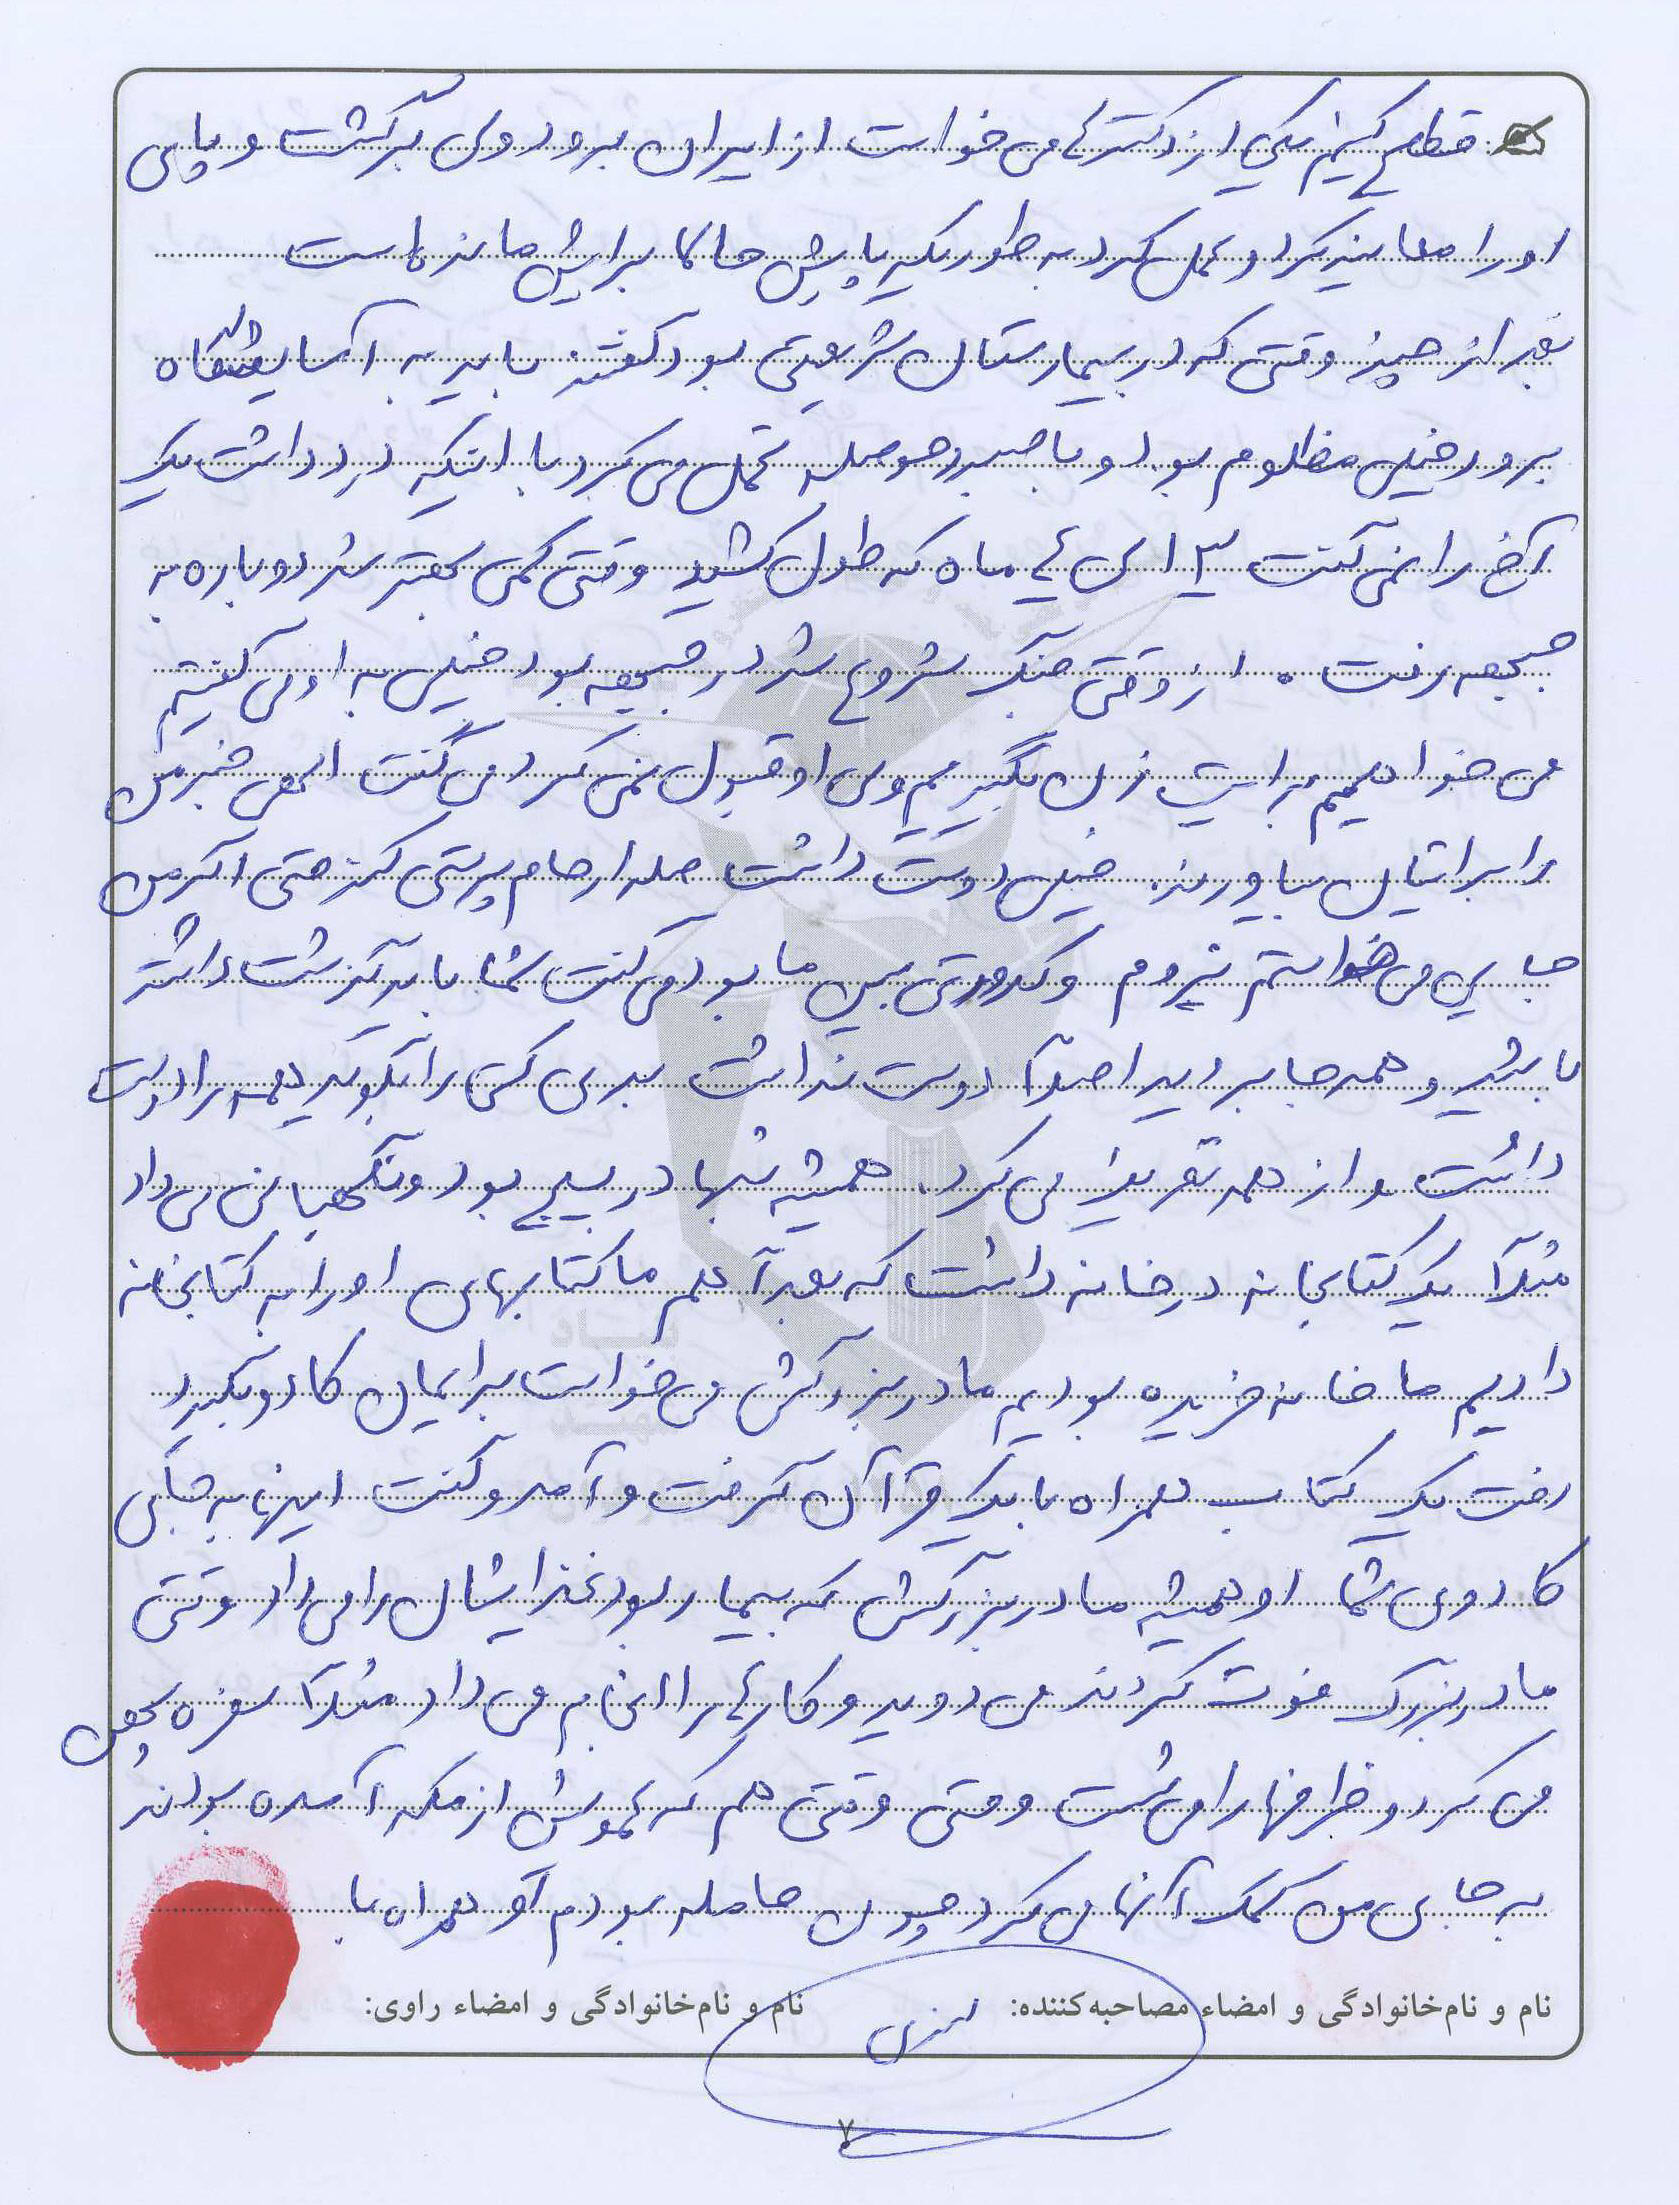 قطع کنیم یکی از دکترها می‌خواست از ایران برود ولی برگشت و پای
او را معاینه کرد و عمل کرد به طوریکه پایش حالا برایش مانده است
بعد از چیز وقتی که در بیمارستان شریعتی بود گفتند باید به آسایشگاه
برود خیلی مظلوم بود و با صبر و حوصله تحمل می‌کرد با اینکه درد داشت یک
آخ را نمی‌گفت ۳ الی ۴ ماه که طول کشید وقتی کمی بهتر شد دوباره به
جبهه رفت. از وقتی جنگ شروع شد در جبهه بود خیلی به او می‌گفتیم
می‌خواهیم برایت زن بگیریم ولی او قبول نمی‌کرد می‌گفت الهی خبر من
را برایتان بیاورند. خیلی دوست داشت صله ارحام پرستی کند حتی اگر من
جایی می‌خواستم نروم و کدورتی بین ما بود می‌گفت شما باید گذشت داشته
باشید و همه جا بروید اصلاً دوست نداشت بدی کسی را بگوید همه را دوست
داشت و از همه تعریف می‌کرد. همیشه شبها در بسیج بود و نگهبانی می‌داد
مثلاً یک کتابخانه در خانه داشت که بعداً هم ما کتابهای او را به کتابخانه
دادیم ما خانه خریده بودیم مادربزرگش می‌خواست برایمان کادو بگیرد
رفت یک کتاب همراه با یک قرآن گرفت و آمد و گفت اینها به جای
کادوی شما او همیشه مادربزرگش که بیمار بود غذایشان را می‌داد وقتی
مادربزرگ فوت کردند می‌دوید و کارها را انجام می‌داد مثلاً سفره پهن
می‌کرد و ظرفها را می‌شست و حتی وقتی هم که عمویش از مکه آمده بودند
به جای من کمک آنها می‌کرد چون حامله بودم او همراه با
نام و نام‌خانوادگی و امضاء مصاحبه‌کننده: نام و نام‌خانوادگی و امضاء راوی:
۷